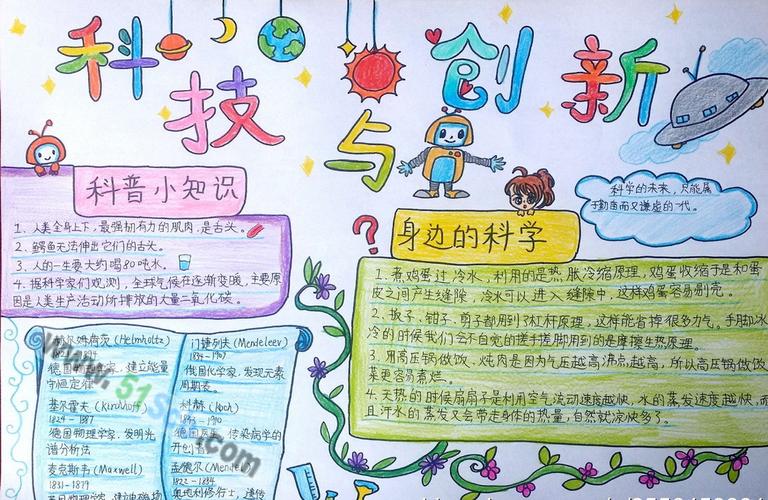 科技与创新
科普小知识
1、人类全身上下，最强韧有力的肌肉，是舌头。
2、鳄鱼无法伸出它们的舌头。
3、人的一生要大约喝80吨水。
4、据科学家们观测，全球气候在逐渐变暖，主要原
因是人类生产活动所排放的大量二氧化碳。
科学的未来，只能属
于勤奋而又谦虚的一代。
身边的科学
1、煮鸡蛋过冷水，利用的是热胀冷缩原理，鸡蛋收缩于是和蛋
皮之间产生缝隙，冷水可以进入缝隙中，这样鸡蛋容易剥壳。
2、扳子、钳子、剪子都用到了杠杆原理，这样能省掉很多力气。手脚冰
冷的时候我们会不自觉的搓手搓脚用到的是摩擦生热原理。
3、用高压锅做饭、炖肉是因为气压越高沸点越高，所以高压锅做饭
菜更容易煮烂。
4、天热的时候扇扇子是利用空气流动速度越快，水的蒸发速度越快，而
且汗水的蒸发又会带走身体的热量，自然就凉快多了。
赫尔姆荷茨 (Helmholtz)
德国 学家，建立能量
守恒定律
基尔霍夫 (Kirchhoff)
1824-1887
德国物理学家，发明光
谱分析法
麦克斯韦 (Maxwell)
1831-1879
门捷列夫 (Mendeleev)
1834-1907
俄国化学家，发现元素
周期表。
科赫 (Koch)
1843-1910
德国医 ，传染病学的
开创者
孟德尔 (Mendel)
1822-1884
奥地利修行士，遗传